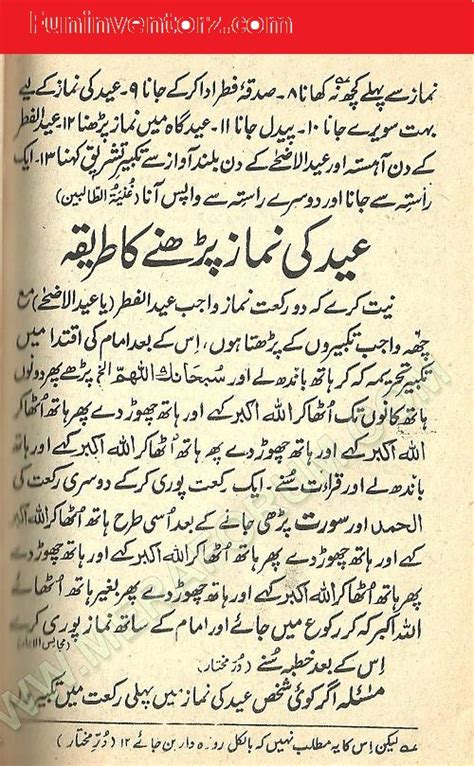 Funinventorz.com
نماز سے پہلے کچھ نہ کھانا ۸۔ صدقۂ فطر ادا کر کے جانا ۹۔ عید کی نماز کے لیے
بہت سویرے جانا ۱۰۔ پیدل جانا ۱۱۔ عید گاہ میں نماز پڑھنا ۱۲ عید الفطر
کے دن آہستہ اور عید الاضحٰے کے دن بلند آواز سے تکبیر تشریق کہنا ۱۳۔ ایک
راستہ سے جانا اور دوسرے راستہ سے واپس آنا (غُنْیَۃُ الطالبین)
عید کی نماز پڑھنے کا طریقہ
نیت کرے کہ دو رکعت نماز واجب عید الفطر (یا عید الاضحٰے) مع
چھ واجب تکبیروں کے پڑھتا ہوں، اِس کے بعد امام کی اقتدا میں
تکبیر تحریمہ کہہ کر ہاتھ باندھ لے اور سُبحانك اللّٰهمّ الخ پڑھے پھر دونوں
ہاتھ کانوں تک اُٹھا کر اللہ اکبر کہے اور ہاتھ چھوڑ دے پھر ہاتھ اُٹھا کر
اللہ اکبر کہے اور ہاتھ چھوڑ دے پھر ہاتھ اُٹھا کر اللہ اکبر کہے اور ہاتھ
باندھ لے اور قراءت سُنے۔ ایک رکعت پوری کر کے دوسری رکعت کی
الحمد اور سورت پڑھی جانے کے بعد اُسی طرح ہاتھ اُٹھا کر اللہ اکبر
کہے اور ہاتھ چھوڑ دے پھر ہاتھ اُٹھا کر اللہ اکبر کہے اور ہاتھ چھوڑ دے
پھر ہاتھ اُٹھا کر اللہ اکبر کہے اور ہاتھ چھوڑ دے پھر بغیر ہاتھ اُٹھائے
اللہ اکبر کہہ کر رکوع میں جائے اور امام کے ساتھ نماز پوری کرے
اِس کے بعد خطبہ سُنے (دُرِّ مختار)
مسئلہ اگر کوئی شخص عید کی نماز میں پہلی رکعت میں تکبیر
لیکن اِس کا یہ مطلب نہیں کہ بالکل روزہ دار بن جائے ۱۲ (دُرِّ مختار)